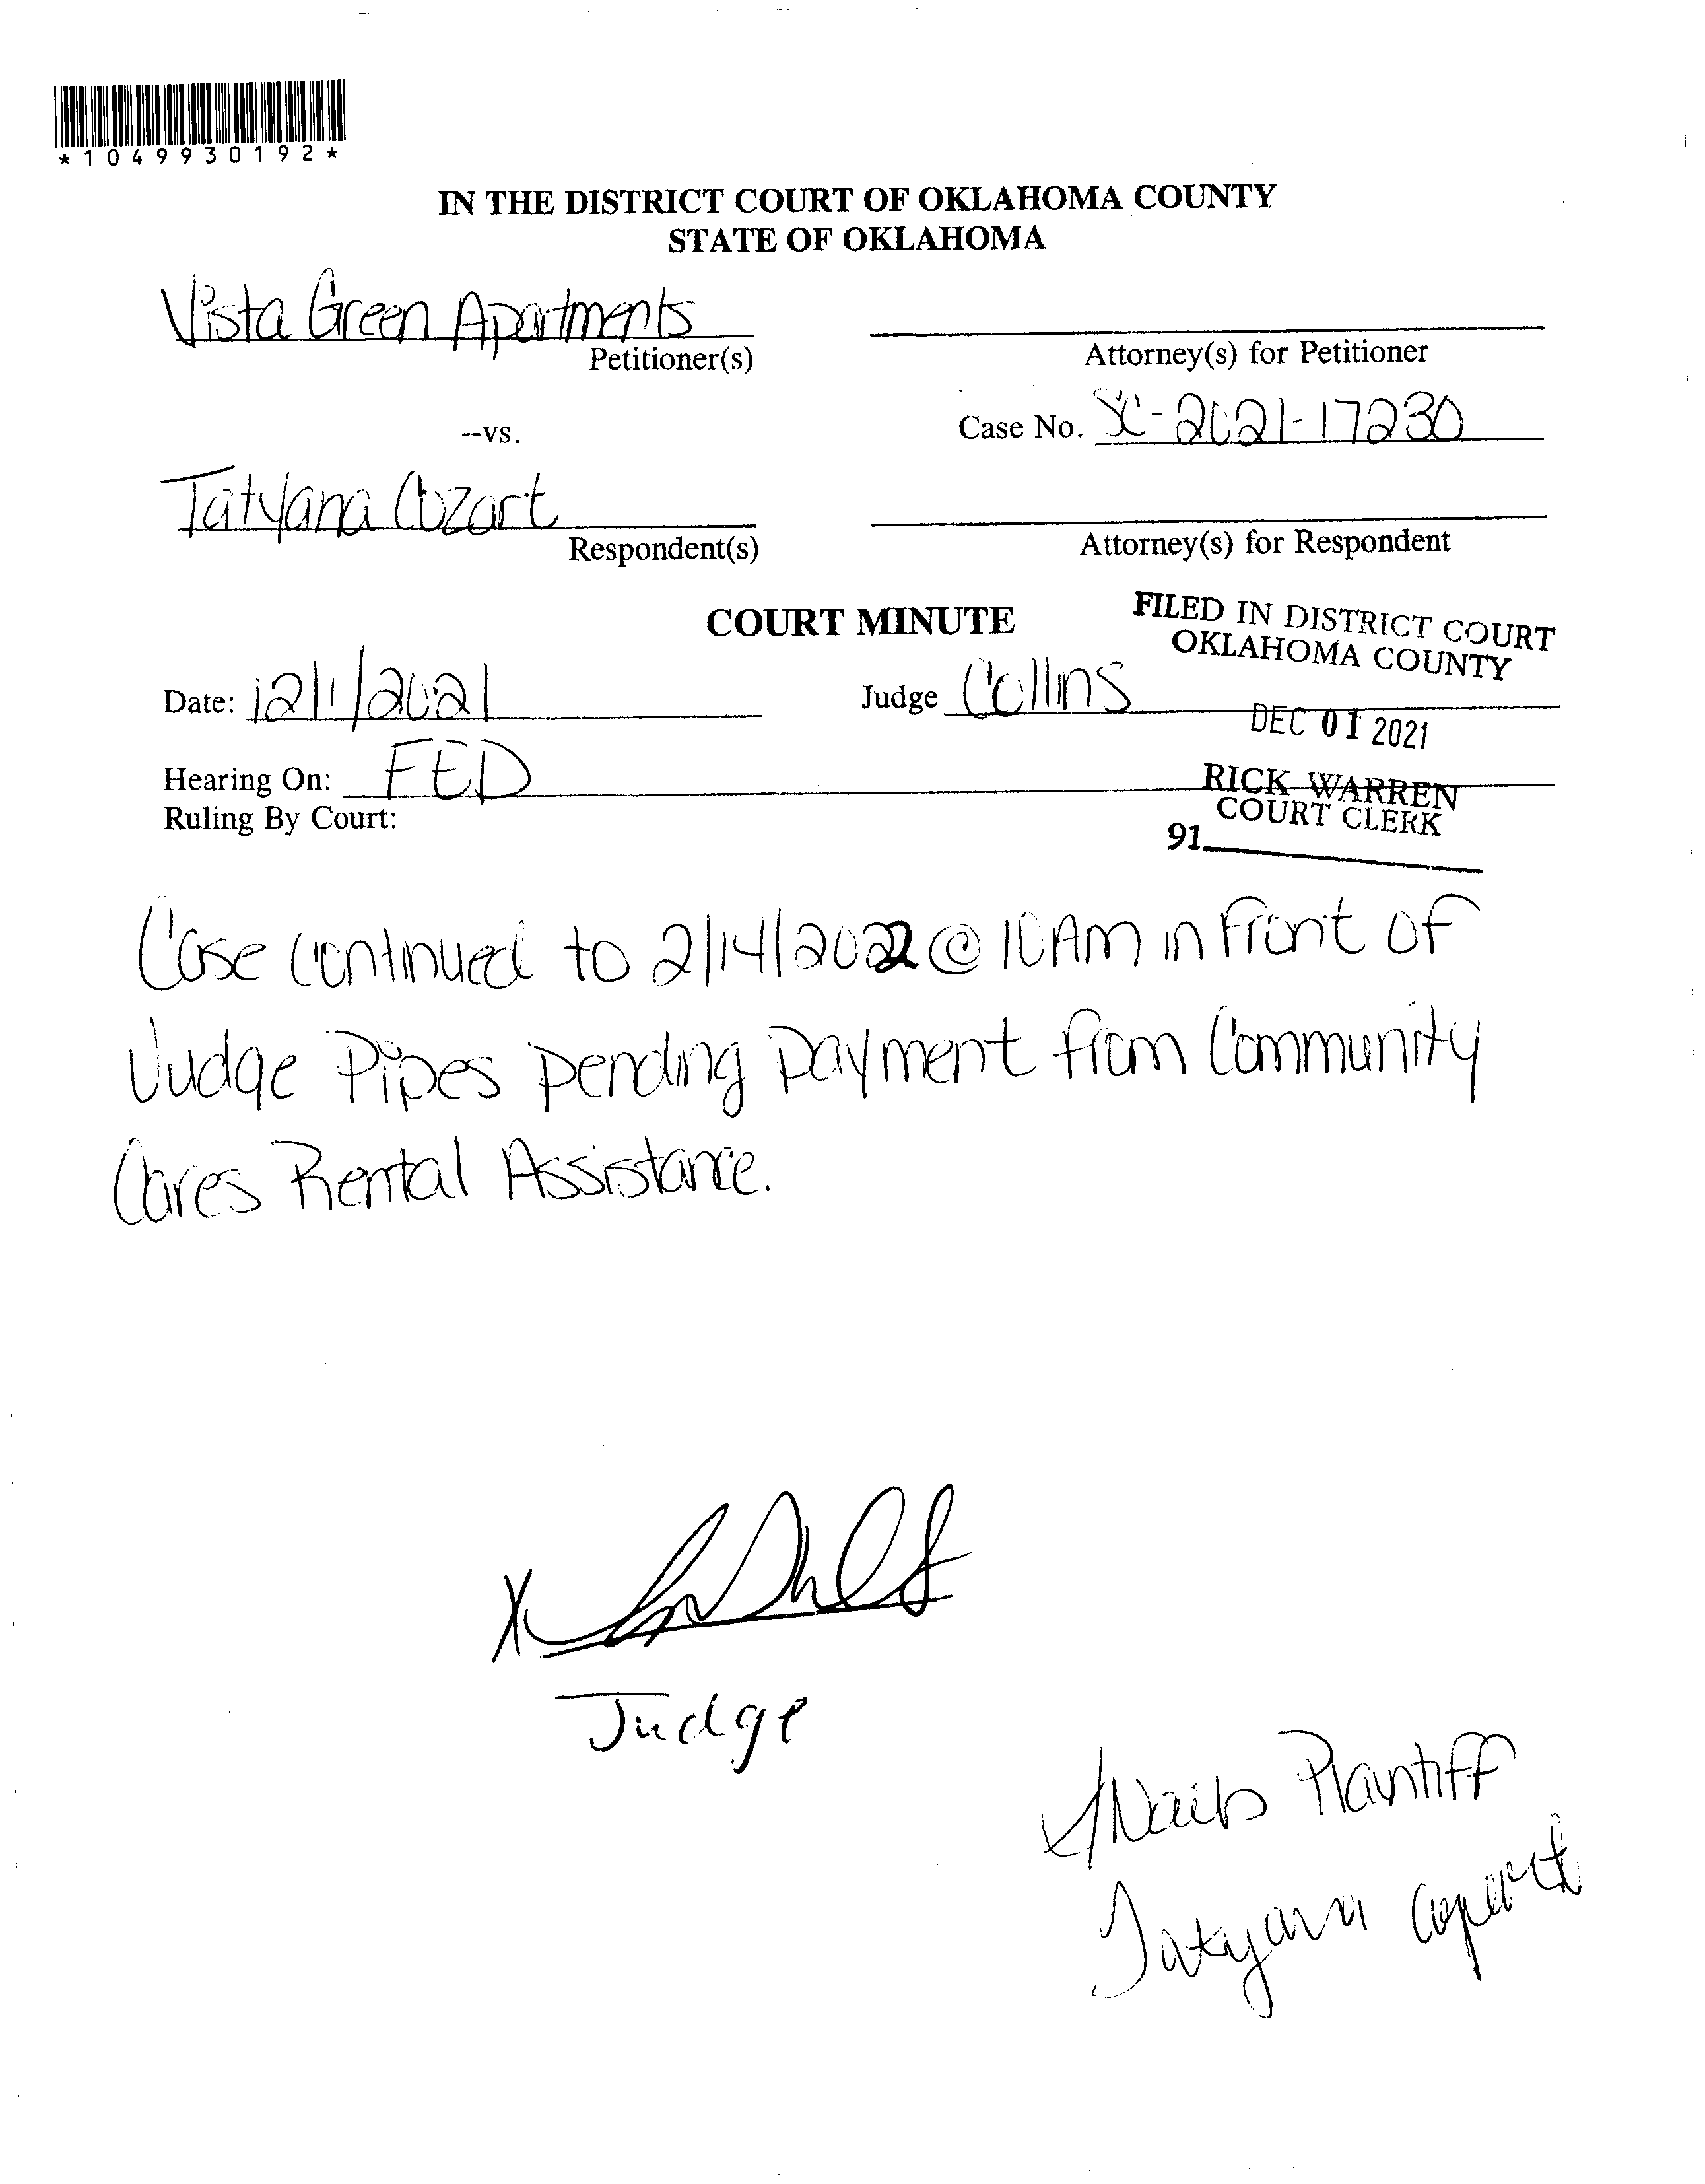 *1049930192*
IN THE DISTRICT COURT OF OKLAHOMA COUNTY
STATE OF OKLAHOMA
Vista Green Apartments
Petitioner(s)
Attorney(s) for Petitioner
--vs.
Case No. SC-2021-17230
Tatyana Cozart
Respondent(s)
Attorney(s) for Respondent
COURT MINUTE
FILED IN DISTRICT COURT
OKLAHOMA COUNTY
Date: 12/1/2021
Judge Collins
DEC 01 2021
Hearing On: FED
RICK WARREN
COURT CLERK
Ruling By Court:
91
Case continued to 2/14/2022 @ 10AM in front of
Judge Pipes pending payment from Community
Cares Rental Assistance.
X
Judge
Plantiff
Tatyana